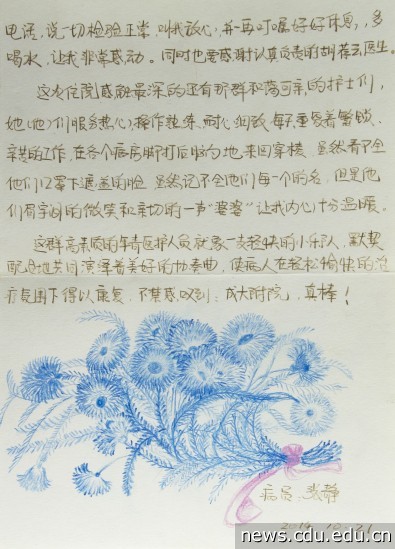 电话,说一切检验正常,叫我放心,并再叮嘱好好休息,多
喝水,让我非常感动。同时也要感谢认真负责的胡蓉云医生。
这次住院感触最深的还有那群和蔼可亲的护士们,
她(他)们服务热心,操作熟练,耐心细致,每天重复着繁锁、
辛苦的工作,在各个病房脚打后脑勺地来回穿梭,虽然看不全
他们口罩下遮盖的脸,虽然记不全他们每一个的名,但是他
们弯弯的微笑和亲切的一声"婆婆"让我内心十分温暖。
这群高素质的年青医护人员就象一支轻快的小乐队,默契
配合地共同演绎着美好的协奏曲,使病人在轻松愉快的治
疗氛围下得以康复,不禁感叹到:成大附院,真棒!
病员:张静
2019.10.21
news.cdu.edu.cn